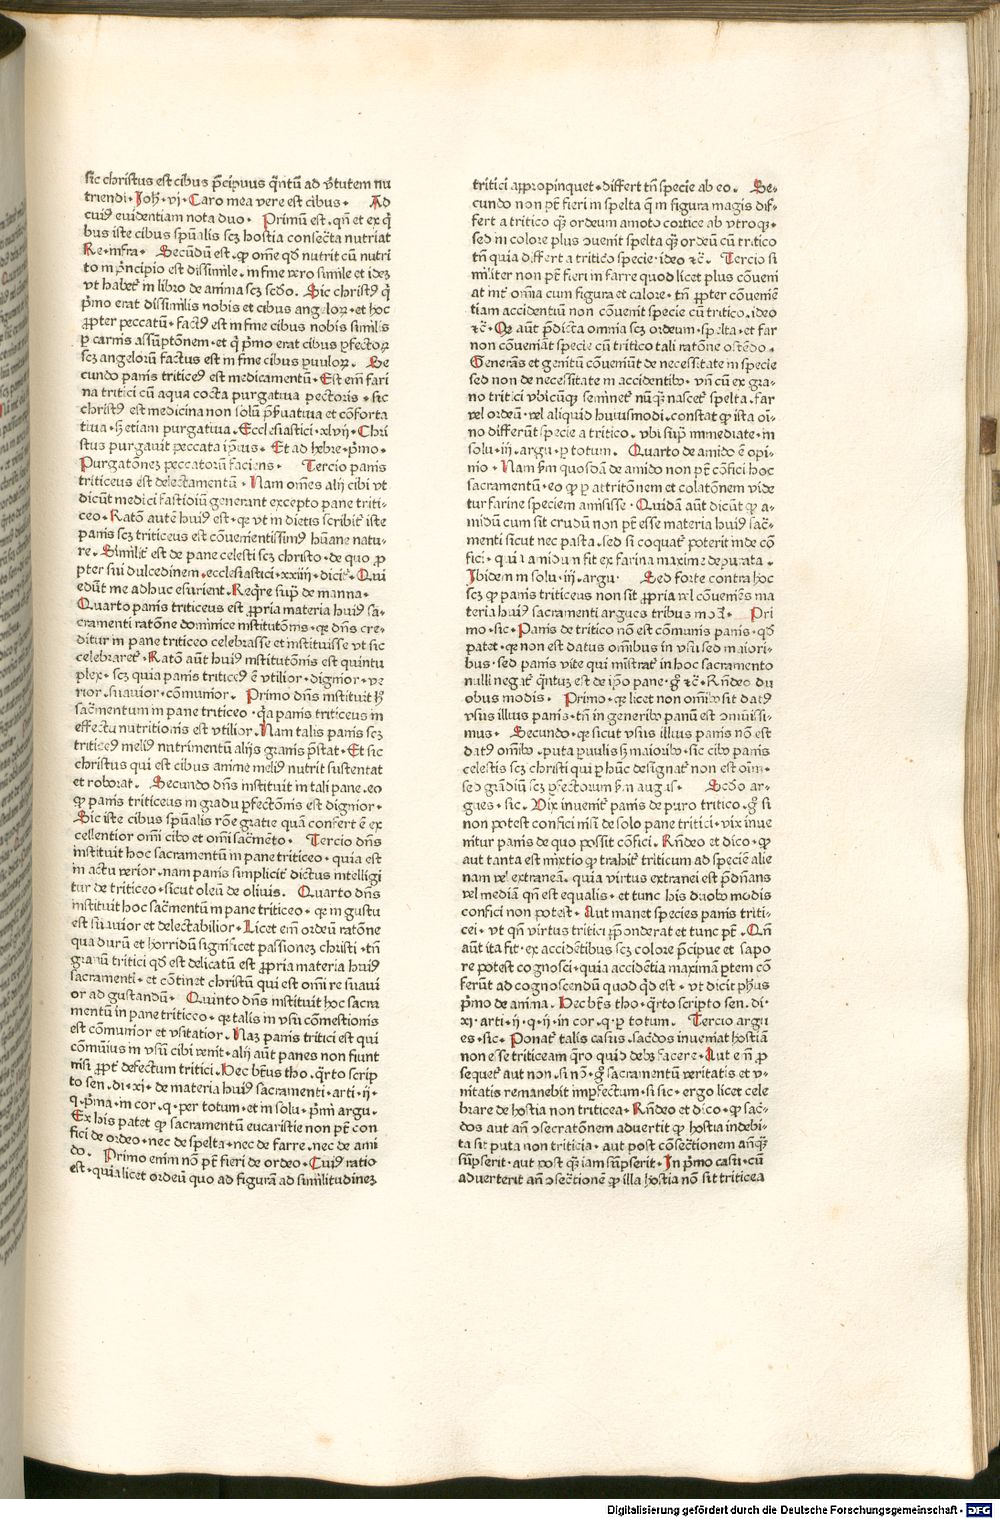 sic christus est cibus p̄cipuus q̄ntū ad v̄tutem nu
triendi · Joh̄ · vj · Caro mea vere est cibus · Ad
cuiꝰ euidentiam nota duo · Primū est · qn̄ et ex q̊
bus iste cibus spūalis scꝫ hostia consec̄ta nutriat
Re · infra · Secūdū est · ꝙ om̄e qd̄ nutrit cū nutri
to in p̄ncipio est dissimile · in fine vero simile et ideꝫ
vt habet᷑ in libro de anima scꝫ sc̄do · Sic christꝰ q̊
p̊mo erat dissimilis nobis et cibus angeloꝝ · et hoc
ꝓpter peccatū · factꝰ est in fine cibus nobis similis
ꝑ carnis assūptōnem · et q̊ p̊mo erat cibus ꝑfectoꝝ
scꝫ angelorū factus est in fine cibus ꝑuuloꝝ · Se
cundo panis triticeꝰ est medicamentū · Est em̄ fari
na tritici cū aqua cocta purgatiua pectoris · sic
christꝰ est medicina non solū p̄seruatiua et cōforta
tiua · sꝫ etiam purgatiua · Ecclesiastici · xlvij · Chri
stus purgauit peccata ip̄ius · Et ad hebre · p̊mo ·
Purgatōneꝫ peccatorū faciens · Tercio panis
triticeus est delectamentū · Nam om̄es alij cibi vt
dicūt medici fastidiū generant excepto pane triti⸗
ceo · Ratō autē huiꝰ est · qꝛ vt in dietis scribit᷑ iste
panis scꝫ triticeus est cōuenientissimꝰ hūane natu⸗
re · Similit᷑ est de pane celesti scꝫ christo · de quo ꝓ
pter sui dulcedinem · ecclesiastici · xxiiij · dicit᷑ · Qui
edūt me adhuc esurient · Req̄re sup̄ de manna ·
Quarto panis triticeus est ꝓpria materia huiꝰ sa⸗
cramenti ratōne dominice institutōnis · qꝛ dn̄s cre⸗
ditur in pane triticeo celebrasse et instituisse vt sic
celebraret᷑ · Ratō aūt huiꝰ institutōnis est quintu
plex · scꝫ quia panis triticeꝰ ē vtilior · dignior · ve
rior · suauior · cōmunior · Primo dn̄s instituit h̄
sac̄mentum in pane triticeo · q̄a panis triticeus in
effectu nutritionis est vtilior · Nam talis panis scꝫ
triticeꝰ meliꝰ nutrimentū alijs granis p̄stat · Et sic
christus qui est cibus anime meliꝰ nutrit sustentat
et roborat · Secundo dn̄s instituit in tali pane · eo
ꝙ panis triticeus in gradu ꝑfectōnis est dignior ·
Sic iste cibus spūalis rōne gratie quā confert ē ex
cellentior om̄i cibo et om̄i sac̄mēto · Tercio dn̄s
instituit hoc sacramentū in pane triticeo · quia est
in actu verior · nam panis simplicit᷑ dictus intelligi
tur de triticeo · sicut oleū de oliuis · Quarto dn̄s
instituit hoc sac̄mentū in pane triticeo · qꝛ in gustu
est suauior et delectabilior · Licet em̄ ordeū ratōne
qua durū et horridū significet passioneꝫ christi · tn̄
granū tritici qd̄ est delicatū est ꝓpria materia huiꝰ
sacramenti · et cōtinet christū qui est om̄i re suaui
or ad gustandū · Quinto dn̄s instituit hoc sacra
mentū in pane triticeo · qꝛ talis in vsu cōmestionis
est cōmunior et vsitatior · Naꝫ panis tritici est qui
cōmuius in vsum cibi venit · alij aūt panes non fiunt
nisi ꝓpt᷑ defectum tritici · Hec bt̄us tho · q̄rto scrip
to sen · di · xi · de materia huiꝰ sacramenti · arti · ij ·
q · p̊ma · in cor · q · per totum · et in solu · p̊mi argu ·
Ex his patet ꝙ sacramentū eucaristie non pt̄ con
fici de ordeo · nec de spelta · nec de farre · nec de ami
do · Primo enim nō pt̄ fieri de ordeo · Cuiꝰ ratio
est · quia licet ordeū quo ad figurā ad similitudineꝫ
tritici appropinquet · differt tn̄ specie ab eo · Se⸗
cundo non pt̄ fieri in spelta q̄ in figura magis dif⸗
fert a tritico qꝫ ordeum amoto cortice ab vtroqꝫ ·
sed in colore plus ↄuenit spelta qꝫ ordeū cū tritico
tn̄ quia differt a tritico specie · ideo ⁊c̄ · Tercio si
militer non pt̄ fieri in farre quod licet plus cōueni
at int᷑ om̄ia cum figura et calore · tn̄ ꝓpter cōuenie
tiam accidentiū non cōuenit specie cū tritico · ideo
⁊c̄ · Qꝙ aūt p̄dicta omnia scꝫ ordeum · spelta · et far
non cōueniāt specie cū tritico tali ratōne ostēdo ·
Generās et genitū cōueniūt de necessitate in specie
sed non de necessitate in accidentibꝰ · vn̄ cū ex gra⸗
no tritici vbicūqꝫ seminet᷑ nūqꝫ nascet᷑ spelta · far
vel ordeū · vel aliquid huiusmodi · constat ꝙ ista oī⸗
no differūt specie a tritico · vbi sup̄ immediate · in
solu · iij · argu · ꝑ totum · Quarto de amido ē opi⸗
nio · Nam scd̄m quosdā de amido non pt̄ cōfici hoc
sacramentū · eo ꝙ ꝑ attritōnem et colatōnem vide
tur farine speciem amisisse · Quidā aūt dicūt ꝙ a⸗
midū cum sit crudū non pt̄ esse materia huiꝰ sac̄⸗
menti sicut nec pasta · sed si coquat᷑ poterit inde cō
fici · quia amidum fit ex farina maxime depurata ·
Ibidem in solu · iij · argu · Sed forte contra hoc
scꝫ ꝙ panis triticeus non sit ꝓpria vel cōueniēs ma
teria huiꝰ sacramenti argues tribus modis · Pri
mo · sic · Panis de tritico nō est cōmunis panis · qd̄
patet · qꝛ non est datus om̄ibus in vsu sed maiori⸗
bus · sed panis vite qui mīstrat᷑ in hoc sacramento
nulli negat᷑ q̄ntuꝫ est de ip̄o pane · ḡ ⁊c̄ · Rn̄deo du
obus modis · Primo · qꝛ licet non om̄ibꝰ sit datꝰ
vsus illius panis · tn̄ in generibꝰ panū est ↄmunissi⸗
mus · Secundo · qꝛ sicut vsus illius panis nō est
datꝰ om̄ibꝰ · puta ꝑuulis sꝫ maioribꝰ · sic cibꝰ panis
celestis scꝫ christi qui ꝑ hūc designat᷑ non est oīm ·
sed grādiū scꝫ ꝑfectorum scd̄m augꝰ · Sc̄do ar⸗
gues · sic · Vix inuenit᷑ panis de puro tritico · ḡ si
non potest confici nisi de solo pane tritici · vix inue
nitur panis de quo possit cōfici · Rn̄deo et dico · ꝙ
aut tanta est mixtio ꝙ trahit᷑ triticum ad speciē alie
nam vel extraneā · quia virtus extranei est p̄dn̄ans
vel mediā qn̄ est equalis · et tunc his duobꝰ modis
confici non potest · Aut manet species panis triti⸗
cei · vt qn̄ virtus tritici p̄ponderat et tunc pt̄ · Qn̄
aūt ita fit · ex accidētibus scꝫ colore p̄cipue et sapo
re potest cognosci · quia accidētia maximā ꝑtem cō
ferūt ad cognoscendū quod qd̄ est · vt dicit ph̄us
p̊mo de anima · Hec bt̄s tho · q̄rto scripto sen · di ·
xj · arti · ij · q · ij · in cor · q · ꝑ totum · Tercio argu
es · sic · Ponat᷑ talis casus · sac̄dos inueniat hostiā
non esse triticeam q̄ro quid debꝫ facere · Aut em̄ ꝓ
sequet᷑ aut non · si nō · ḡ sacramentū veritatis et v⸗
nitatis remanebit imꝑfectum · si sic · ergo licet cele
brare de hostia non triticea · Rn̄deo et dico · ꝙ sac̄⸗
dos aut an̄ ↄsecratōnem aduertit ꝙ hostia indebi⸗
ta sit puta non triticia · aut post cōsec̄tionem an̄qꝫ
sūpserit · aut post qꝫ iam sūpserit · In p̊mo casu · cū
aduerterit an̄ ↄsec̄tionē ꝙ illa hostia nō sit triticea
Digitalisierung gefördert durch die Deutsche Forschungsgemeinschaft - DFG